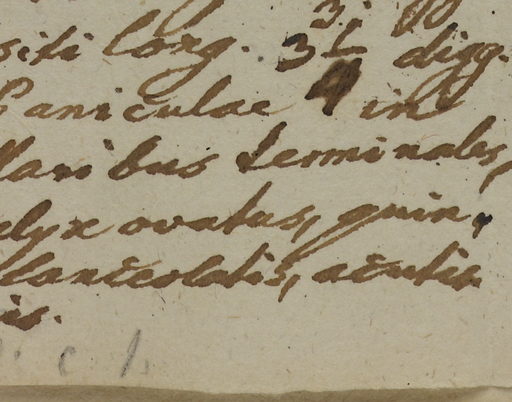 siti long. 3½ digg.
Paniculae 4 in
llaribus terminales,
alyx ovatus, quin,
lanceolatis, acutis
is.